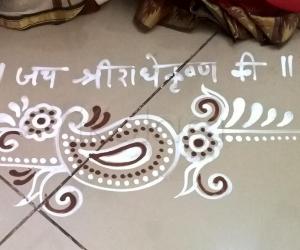 ॥ जय श्रीराधेकृष्ण की ॥